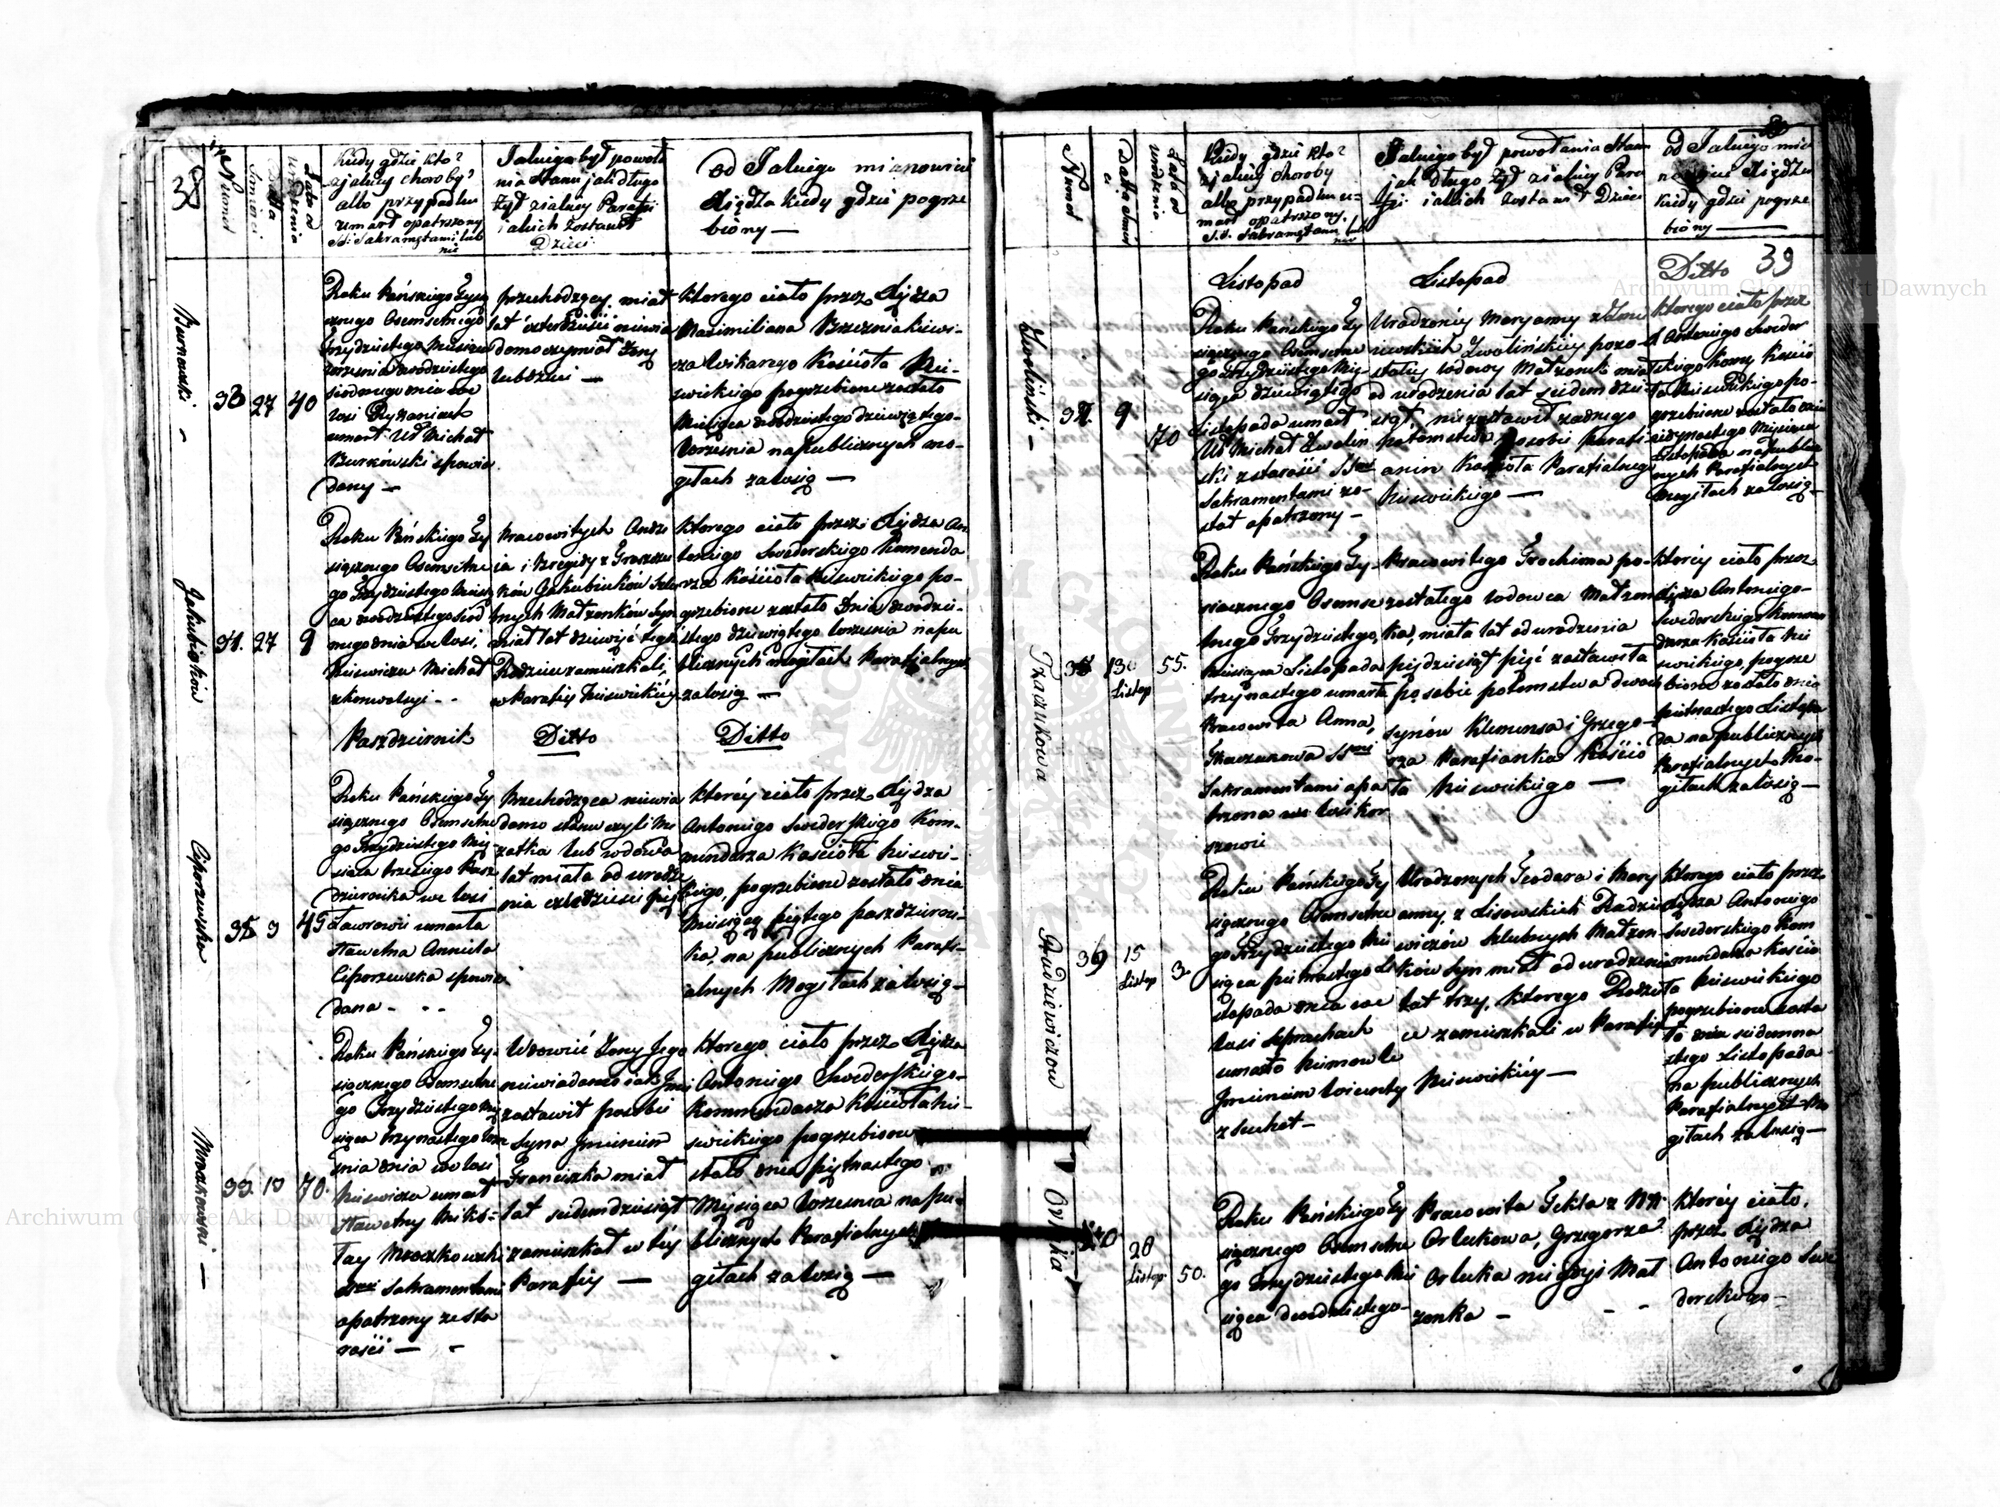 38
Numer
Datta Śmierci
Lata od urodzenia
Kiedy gdzie kto?
z jakiey choroby?
albo przypadku
umarł opatrzony
SS: Sakramentami lub
nie
Jakiego był powoła
nia Stanu jak długo
żył z jakiey Parafii
i jakich zostawił
Dzieci
od Jakiego mianowicie
Xiędza kiedy gdzie pogrze
biony —
Burnowski -
33
27
40
Roku Pańskiego Tysią
cznego Osemsetnego
trzydziestego Miesiąca
Września dwodziestego
siodmego dnia we
wsi
umarł Ur Michał
Burkowski spowia
dany —
przechodzący, miał
lat czterdzieści niewia
domo czy miał żonę
lub dzieci —
ktorego ciało przez Xiędza
Maximiliana Brzezniakiewi-
cza Wikarego Kościoła Nie-
świckiego pogrzebione zostało
Miesiąca dwodziestego dziewiątego
Września na publicznych mo-
giłach zawsią —
Jakubiąkow
34.
27
9
Roku Pańskiego Ty
siącznego Osemsetne
go Trzydziestego Miesią
ca dwodziestego siod
mego dnia we wsi,
Nieswiczu Michał
z konwulsyi - -
Pracowitych Andr
ia i Brygidy z
ków Jakubiuków Szlu
bnych Małżonków Syn
miał lat dziewięć tegoż
Rodzice zamieszkali,
w Parafiy Nieswickiey
ktorego ciało przez Xiędza An
toniego Swederskiego Komenda
rza Kościoła Nieswickiego po-
grzebione zostało Dnia dwódzie-
stego dziewiątego Września na pu
blicznych mogiłach Parafialnych
zawsią —
Pazdziernik
Ditto
Ditto
Ciporzewska
35
3
45
Roku Pańskiego Ty
siącznego Osemsetne
go Trzydziestego Mie-
siąca trzeciego Pazz
dziernika we wsi
Ławrowie umarła
sławetna Anniela
Ciporzewska spowia
dana - - -
Przechodząca niewia
domo stanu czyli Mę
zatka lub wdowa
lat miała od urodze
nia czterdzieści pięć
ktorey ciało przez Xiędza
Antoniego Swederskiego Kom-
mendarza Kościoła Nieswi-
ckiego, pogrzebione zostało dnia
Miesiąca piętego pazdzierni-
ka, na publicznych Parafi-
alnych Mogiłach zawsią —
Mroczkowski —
36.
13
70.
Roku Pańskiego Ty-
siącznego Osemsetne
go Trzydziestego Mie
siąca trzynastego Wrze
snia dnia we wsi
Nieswiczu umarł
sławetny Miko-
łay Mroczkowski
SSmi Sakramentami
opatrzony ze sta
rości — -
Wdowiec Żony Jego
niewiadomo jak Jmię
zostawił po sobie
Syna Jmieniem
Franciszka miał
lat siedemdziesiąt
zamieszkał w tey
Parafiy —
ktorego ciało przez Xiędza
Antoniego Swederskiego-
Kommendarza Kościoła Nie-
swickiego pogrzebione zo
stało dnia piętnastego
Miesiąca Września na pu-
blicznych Parafialnych Mo
giłach zawsią —
Numer
Datta śmierci
Lata od urodzenia
Kiedy gdzie kto?
z jakiey choroby
albo przypadku u-
marł opatrzony.
S.S. Sakramentami lub
nie
Jakiego był powołania Stanu
jak długo żył z jakiey Para
fyi. i jakich zostawił Dzieci
od Jakiego mia
nowicie Xiędza
kiedy gdzie pogrze
biony —
Listopad
Listopad
Ditto 39
Zwolinski -
37.
9
70
Roku Pańskiego Ty
siącznego Osemsetne
go trzydziestego Mie-
siąca dziewiątego
Listopada umarł
Ur Michał Zwolin
ski z starości SSmi
Sakramentami zo-
stał opatrzony -
Urodzoney Maryanny
Zwolińskiey pozo-
stały wdowiec Małżonek miał
od urodzenia lat siedemdzie-
siąt, nie zostawił żadnego
potomstwa po sobie parafi
anin Kościoła Parafialnego
Nieswickiego —
ktorego ciało przez
X Antoniego Sweder
skiego Komę Kościo
ła Nieswickiego po-
grzebione zostało dnia
iedynastego Miesiąca
Listopada na publicz
nych Parafialnych
Mogiłach zawsią -
Tkaczukowa
38
13
Listop
55.
Roku Pańskiego Ty-
siącznego Osemse
tnego Trzydziestego,
Miesiąca Listopada
trzynastego umarła
Pracowita Anna,
Tkaczukowa SSmi
Sakramentami opa
trzona we wsi
szowie
Pracowitego Trochima po-
zostałego wdowca Małżon
ka, miała lat od urodzenia
pięćdziesiąt pięć zostawiła
po sobie potomstwa dwoch
synów Klemensa i Grzego-
rza Parafianka Kościo
ła Nieswickiego —
ktorey ciało przez
Xiędza Antoniego-
Swederskiego Kommen
darza Kościoła Nie
swickiego, pogrze
bione zostało dnia
piętnastego Listopa
da na publicznych
Parafialnych Mo-
giłach zawsią —
Radziewiczow
39
15
Listop
3.
Roku Pańskiego Ty
siącznego Osemsetne
go Trzydziestego Mie
siąca piętnastego Li
stopada dnia we
wsi
umarło Niemowle
Jmieniem Wincenty
z suchot -
Urodzonych Teodora i Mary
anny, z Lisowskich Radzie
wiczów Szlubnych Małżon-
ków Syn miał od urodzenia
lat trzy, ktorego Rodzi-
ce zamieszkali w Parafiy
Nieswickiey —
ktorego ciało przez
Xiędza Antoniego
Swederskiego Kom
mendarza Kościo
ła Nieswickiego
pogrzebione zosta
ło dnia siedemna
stego Listopada
na publicznych
Parafialnych Mo
giłach zawsią —
40
28
Listop
50.
Roku Pańskiego Ty
siącznego Osemsetne
go trzydziestego Mie
siąca dwodziestego-
Pracowita Tekla z NN
Orlukowa, Grzegorza
Orluka niegdyś Mał
zonka -
ktorey ciało,
przez Xiędza
Antoniego Swe
derskiego -
Archiwum Główne Akt Dawnych
Archiwum Główne Akt Dawnych